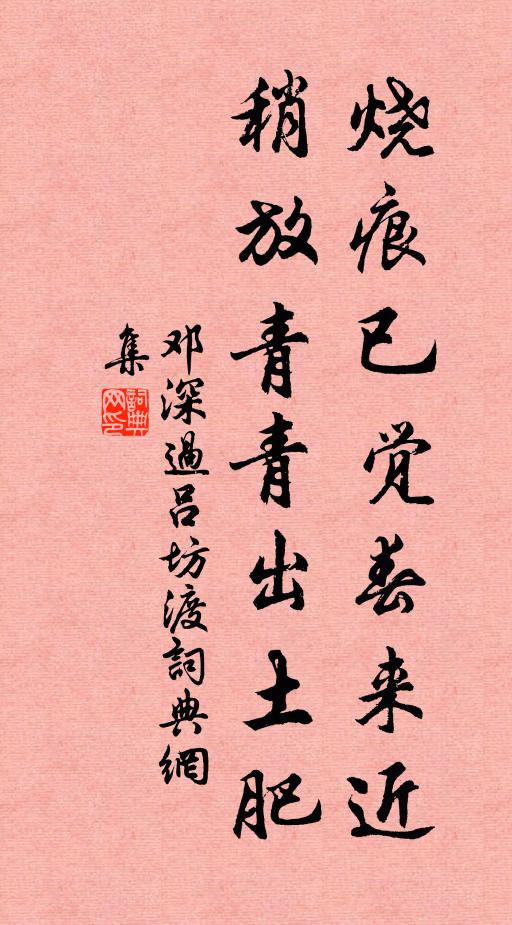 烧痕已觉春来近
稍放青青出土肥
邓深過吕坊渡詞典網
集
詞典网印